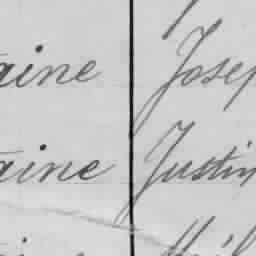 aine Josep
aine Justin